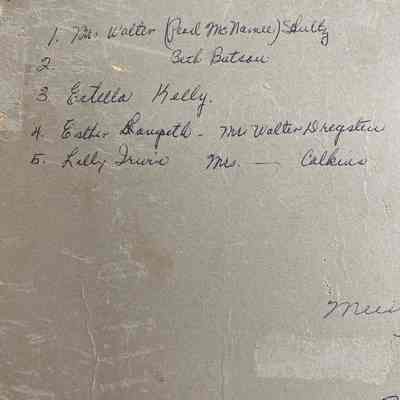 1. Mrs Walter (Pearl McNamee) Shultz
2. Beth Batson
3 Estella Kelly.
4. Esther - Mrs Walter Dregsten
5. Lilly Irwin Mrs. — Calkins